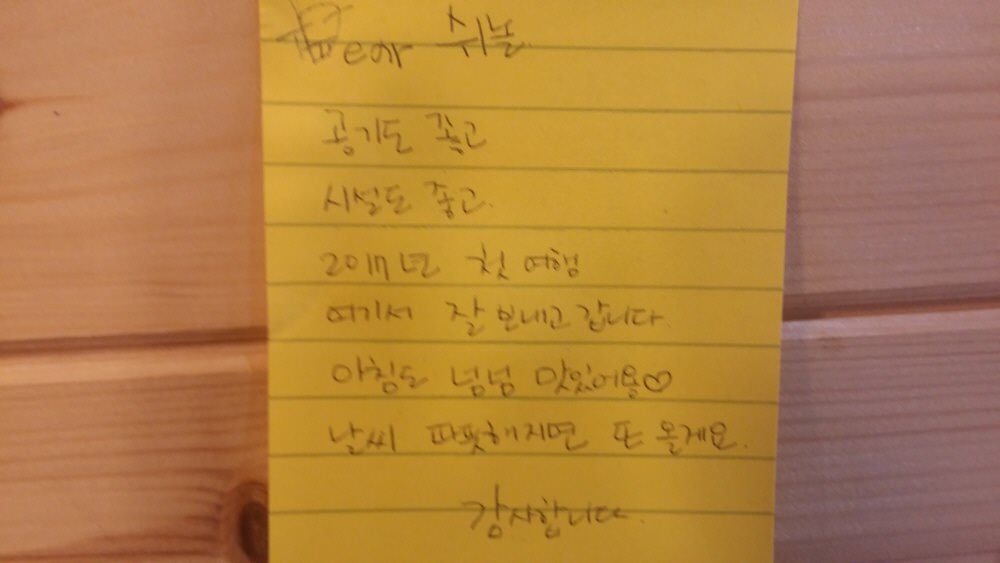 Dear 쉬놀
공기도 좋고
시설도 좋고.
2017년 첫 여행
여기서 잘 보내고 갑니다.
아침도 넘넘 맛있어용♡
날씨 따뜻해지면 또 올게요.
감사합니다.